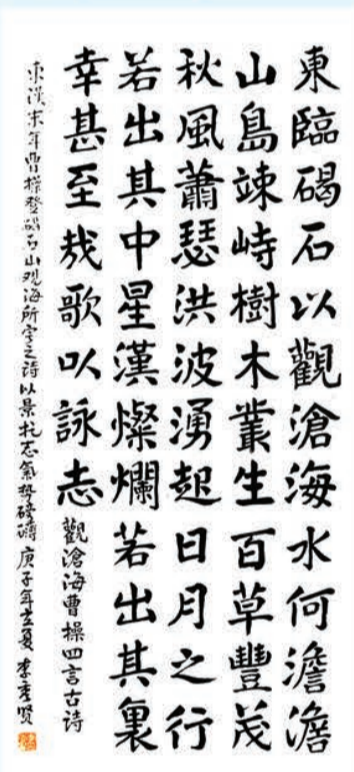 東臨碣石以觀滄海水何澹澹
山島竦峙樹木叢生百草豐茂
秋風蕭瑟洪波湧起日月之行
若出其中星漢燦爛若出其裏
幸甚至哉歌以詠志
觀滄海曹操四言古诗
東漢末年曹操登碣石山观海所写之诗以景托志氣势磅礴 庚子年立夏 李